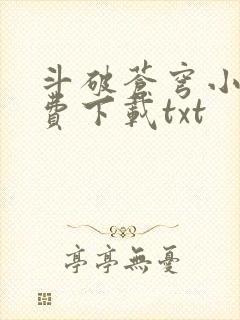 斗破蒼穹小
費下載txt
亭亭無憂